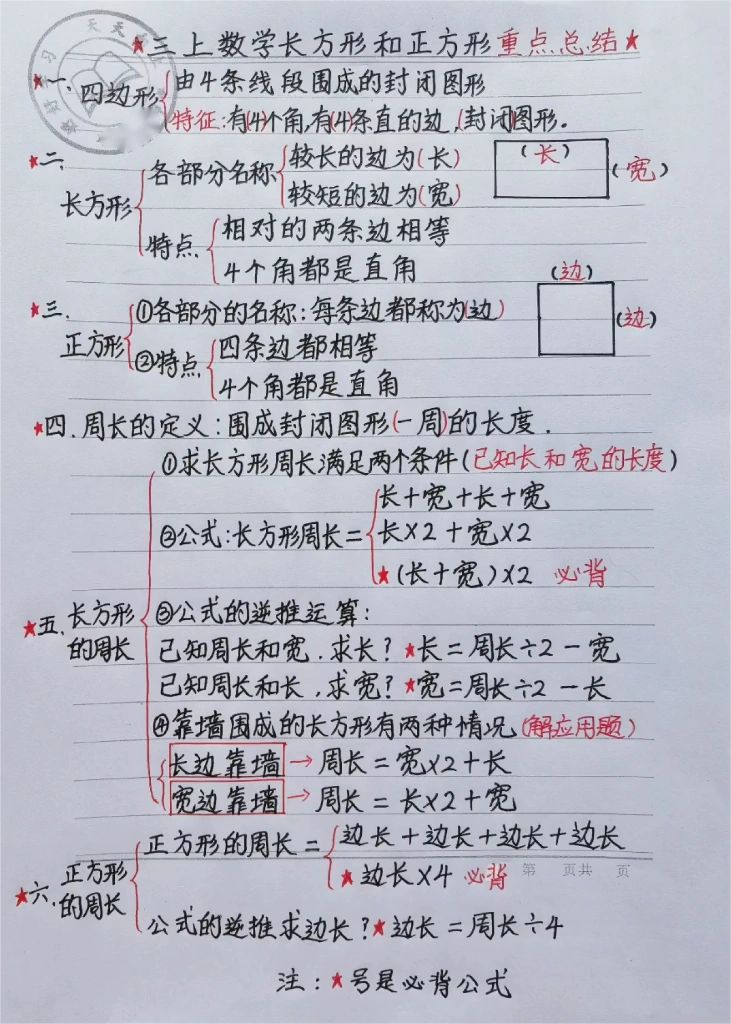 ★三上数学长方形和正方形重点总结★
★一.四边形
由4条线段围成的封闭图形
特征:有(4)个角,有(4)条直的边,(封闭)图形。
★二.
长方形
各部分名称
较长的边为(长)
较短的边为(宽)
(长)
(宽)
特点
相对的两条边相等
4个角都是直角
★三.
正方形
①各部分的名称:每条边都称为(边)
②特点
四条边都相等
4个角都是直角
(边)
(边)
★四.周长的定义:围成封闭图形(一周)的长度.
★五.长方形
的周长
①求长方形周长满足两个条件(已知长和宽的长度)
②公式:长方形周长=
长+宽+长+宽
长×2+宽×2
★(长+宽)×2 必背
③公式的逆推运算:
已知周长和宽.求长?★长=周长÷2-宽
已知周长和长,求宽?★宽=周长÷2-长
④靠墙围成的长方形有两种情况(解应用题)
长边靠墙→周长=宽×2+长
宽边靠墙→周长=长×2+宽
★六.正方形
的周长
正方形的周长=
边长+边长+边长+边长
★边长×4 必背
第 页共 页
公式的逆推求边长?★边长=周长÷4
注:★号是必背公式